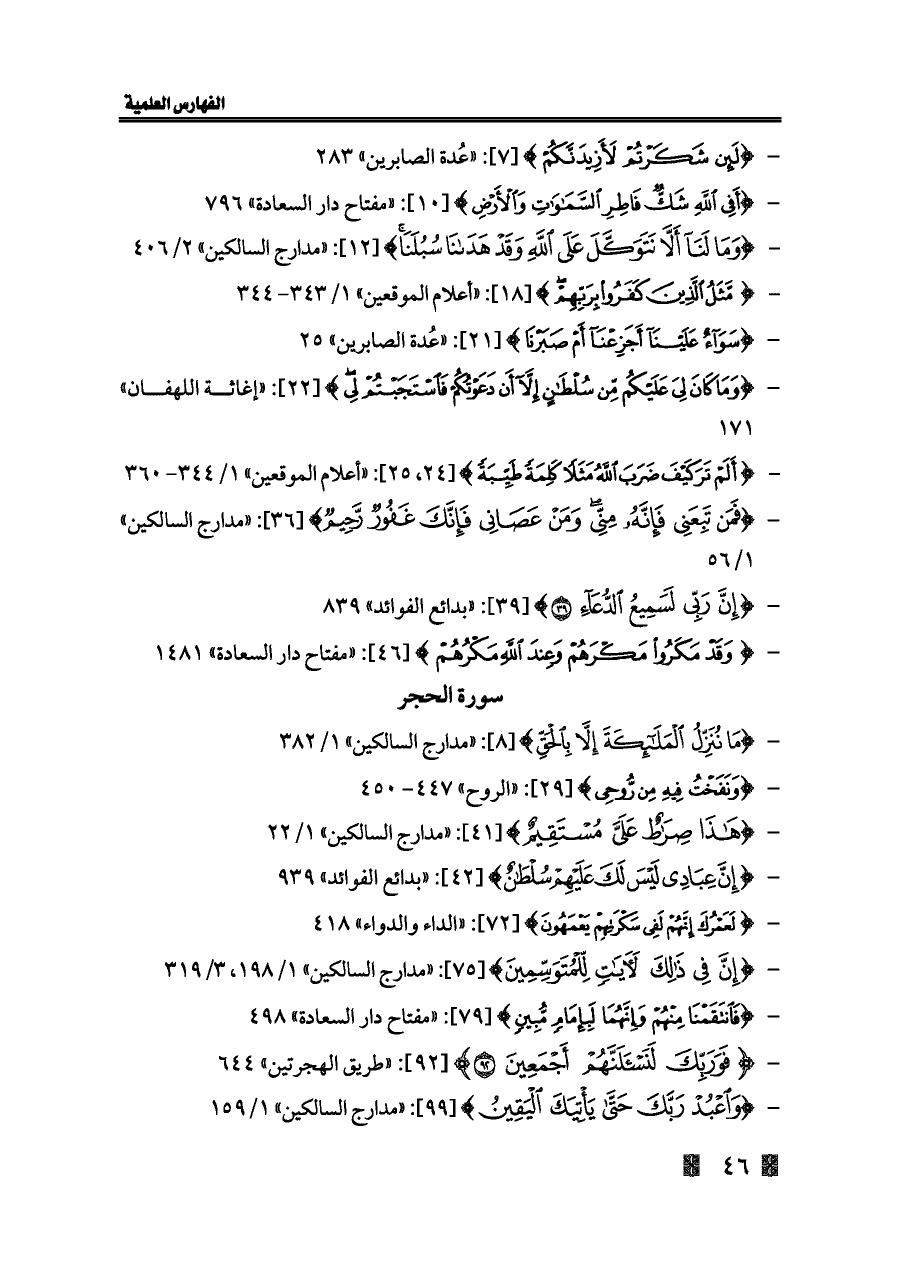 الفهارس العلمية
- ﴿لَئِن شَكَرْتُمْ لَأَزِيدَنَّكُمْ﴾ [٧]: «عُدة الصابرين» ٢٨٣
- ﴿أَفِى ٱللَّهِ شَكٌّ فَاطِرِ ٱلسَّمَٰوَٰتِ وَٱلْأَرْضِ﴾ [١٠]: «مفتاح دار السعادة» ٧٩٦
- ﴿وَمَا لَنَآ أَلَّا نَتَوَكَّلَ عَلَى ٱللَّهِ وَقَدْ هَدَىٰنَا سُبُلَنَا ۚ﴾ [١٢]: «مدارج السالكين» ٢/ ٤٠٦
- ﴿مَّثَلُ ٱلَّذِينَ كَفَرُوا۟ بِرَبِّهِمْ ۖ﴾ [١٨]: «أعلام الموقعين» ١/ ٣٤٣- ٣٤٤
- ﴿سَوَآءٌ عَلَيْنَآ أَجَزِعْنَآ أَمْ صَبَرْنَا﴾ [٢١]: «عُدة الصابرين» ٢٥
- ﴿وَمَا كَانَ لِىَ عَلَيْكُم مِّن سُلْطَٰنٍ إِلَّآ أَن دَعَوْتُكُمْ فَٱسْتَجَبْتُمْ لِى ۖ﴾ [٢٢]: «إغاثة اللهفان»
١٧١
- ﴿أَلَمْ تَرَ كَيْفَ ضَرَبَ ٱللَّهُ مَثَلًا كَلِمَةً طَيِّبَةً﴾ [٢٤، ٢٥]: «أعلام الموقعين» ١/ ٣٤٤- ٣٦٠
- ﴿فَمَن تَبِعَنِى فَإِنَّهُۥ مِنِّى ۖ وَمَنْ عَصَانِى فَإِنَّكَ غَفُورٌ رَّحِيمٌ﴾ [٣٦]: «مدارج السالكين»
١/ ٥٦
- ﴿إِنَّ رَبِّى لَسَمِيعُ ٱلدُّعَآءِ ٣٩﴾ [٣٩]: «بدائع الفوائد» ٨٣٩
- ﴿وَقَدْ مَكَرُوا۟ مَكْرَهُمْ وَعِندَ ٱللَّهِ مَكْرُهُمْ﴾ [٤٦]: «مفتاح دار السعادة» ١٤٨١
سورة الحجر
- ﴿مَا نُنَزِّلُ ٱلْمَلَٰٓئِكَةَ إِلَّا بِٱلْحَقِّ﴾ [٨]: «مدارج السالكين» ١/ ٣٨٢
- ﴿وَنَفَخْتُ فِيهِ مِن رُّوحِى﴾ [٢٩]: «الروح» ٤٤٧- ٤٥٠
- ﴿هَٰذَا صِرَٰطٌ عَلَىَّ مُسْتَقِيمٌ﴾ [٤١]: «مدارج السالكين» ١/ ٢٢
- ﴿إِنَّ عِبَادِى لَيْسَ لَكَ عَلَيْهِمْ سُلْطَٰنٌ﴾ [٤٢]: «بدائع الفوائد» ٩٣٩
- ﴿لَعَمْرُكَ إِنَّهُمْ لَفِى سَكْرَتِهِمْ يَعْمَهُونَ﴾ [٧٢]: «الداء والدواء» ٤١٨
- ﴿إِنَّ فِى ذَٰلِكَ لَـَٔايَٰتٍ لِّلْمُتَوَسِّمِينَ﴾ [٧٥]: «مدارج السالكين» ١/ ١٩٨، ٣/ ٣١٩
- ﴿فَٱنتَقَمْنَا مِنْهُمْ وَإِنَّهُمَا لَبِإِمَامٍ مُّبِينٍ﴾ [٧٩]: «مفتاح دار السعادة» ٤٩٨
- ﴿فَوَرَبِّكَ لَنَسْـَٔلَنَّهُمْ أَجْمَعِينَ ٩٢﴾ [٩٢]: «طريق الهجرتين» ٦٤٤
- ﴿وَٱعْبُدْ رَبَّكَ حَتَّىٰ يَأْتِيَكَ ٱلْيَقِينُ﴾ [٩٩]: «مدارج السالكين» ١/ ١٥٩
٤٦